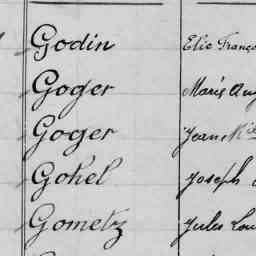 Godin Elie Franço
Goger Marie Aug
Goger Jean Mie
Gohel Joseph
Gometz Jules Lou